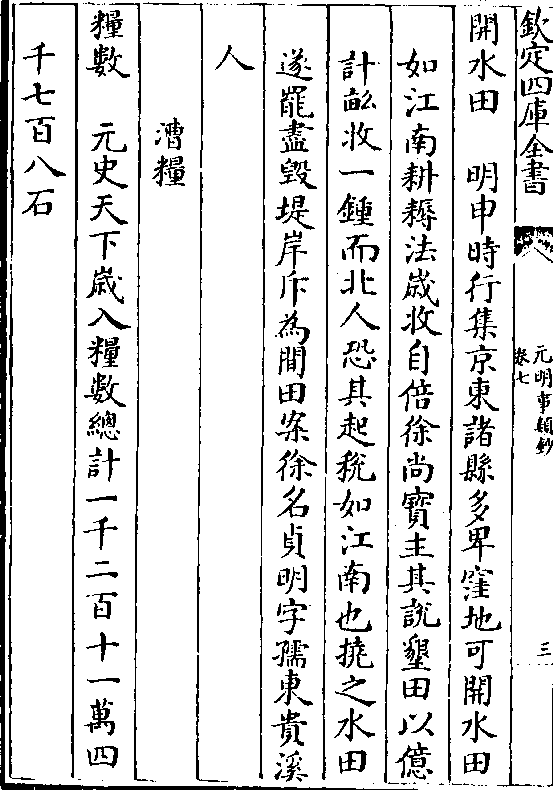 欽定四庫全書
元明事類鈔
卷七
三
開水田　明申時行集京東諸縣多卑窪地可開水田
如江南耕耨法歲收自倍徐尚寶主其說墾田以億
計畝收一鍾而北人恐其起稅如江南也撓之水田
遂罷盡毀堤岸斥為閒田案徐名貞明字孺東貴溪
人
漕糧
糧數　元史天下歲入糧數總計一千二百十一萬四
千七百八石